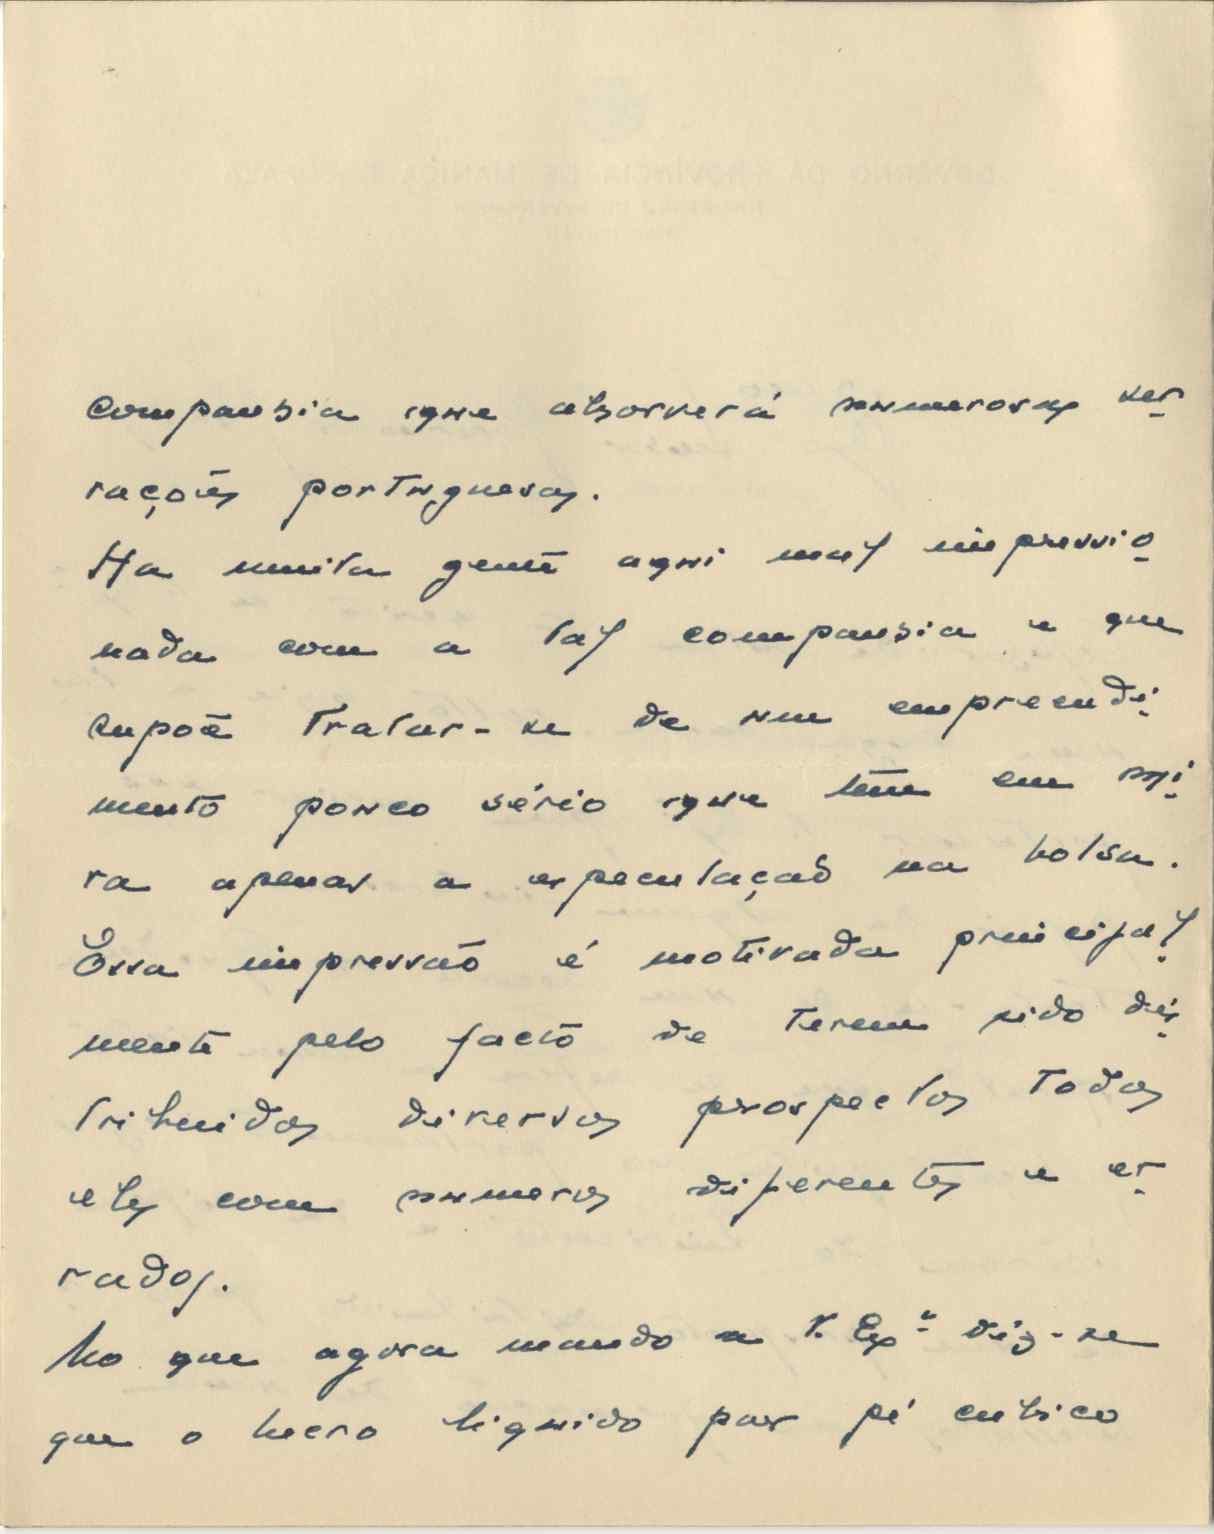 companhia que absorverá numerosas ser
rações portuguesas.
Ha muita gente aqui mal impressio
nada com a tal companhia e que
supoe tratar-se de um empreendi
mento pouco sério que têm em mi
ra apenas a especulaçaõ na bolsa.
Essa impressaõ é motivada principal
mente pelo facto de terem sido dis
tribuidos diversos prospectos todos
eles com numeros diferentes e er
rados.
No que agora mando a V. Exª diz-se
que o lucro liquido por pé cubico